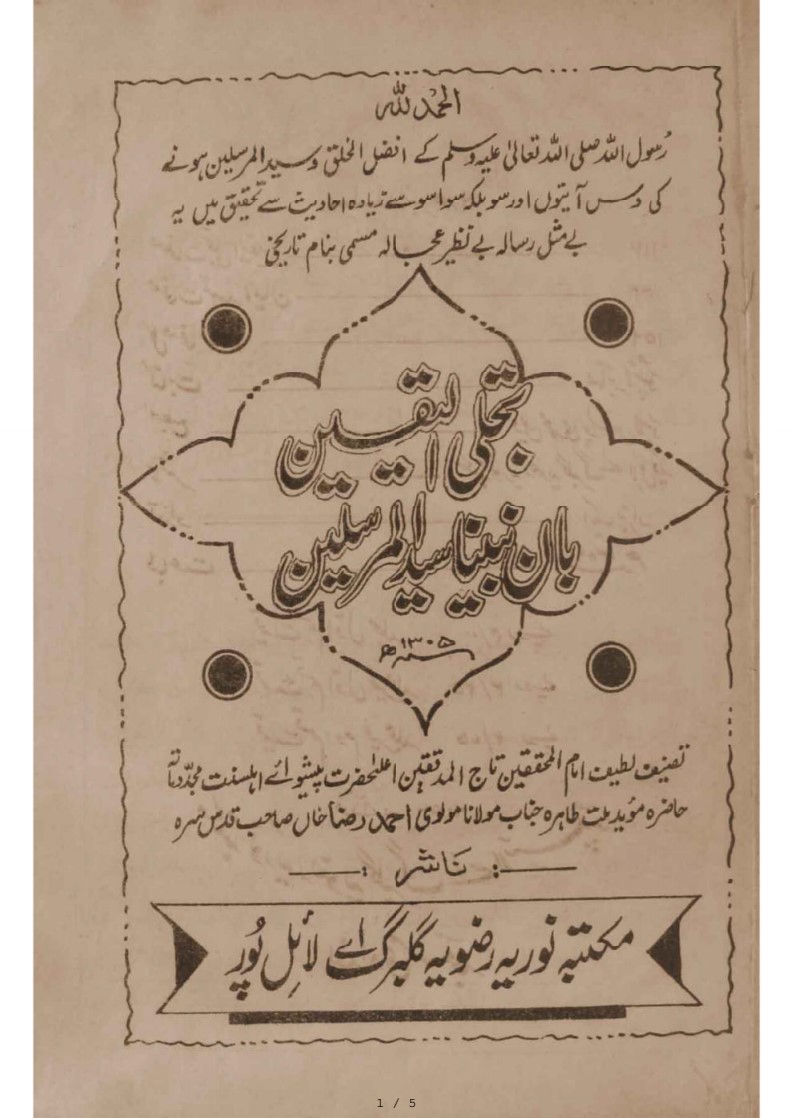 الحمد للہ
رسول اللہ صلی اللہ تعالیٰ علیہ وسلم کے افضل الخلق و سید المرسلین ہونے
کی دس آیتوں اور سو بلکہ سوا سو سے زیادہ احادیث سے تحقیق میں یہ
بے مثل رسالہ بے نظیر عجالہ مسمی بنام تاریخی
تجلی الیقین
بان نبینا سید المرسلین
۱۳۰۵ھ
تصنیف لطیف امام المحققین تاج المدققین اعلیٰحضرت پیشوائے اہلسنت مجدد مائۃ
حاضرہ مؤید ملت طاہرہ جناب مولانا مولوی احمد رضا خاں صاحب قدس سرہ
ناشر
مکتبہ نوریہ رضویہ گلبرگ اے لائل پور
1 / 5